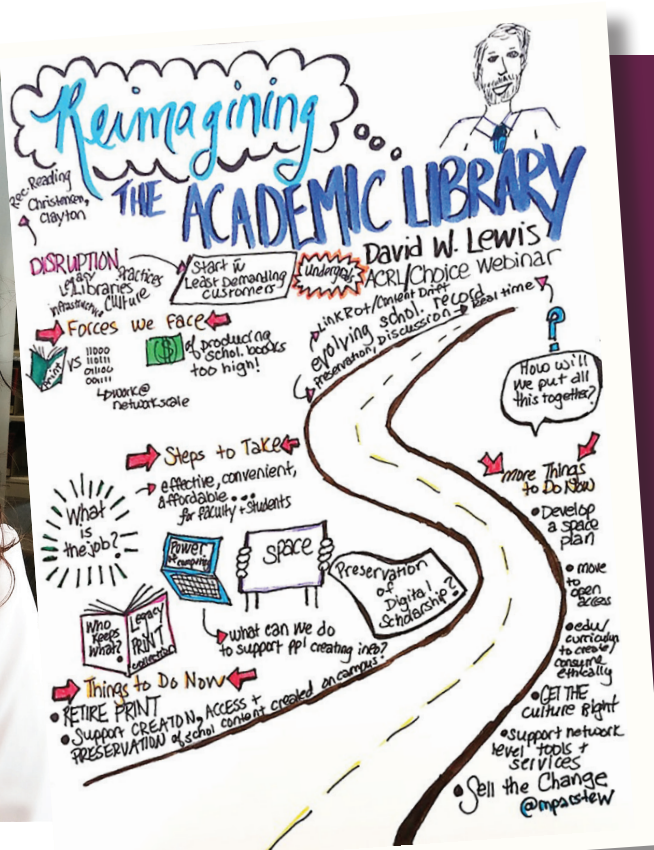 Reimagining
THE ACADEMIC LIBRARY
Rec. Reading
Christensen,
Clayton
David W. Lewis
ACRL/Choice Webinar
DISRUPTION
Legacy Practices
Libraries
infrastructure Culture
Start w/
Least Demanding
Customers
undergrads
Forces We Face
print
VS
11000
110111
of producing
schol. books
too high!
work@
network scale
LinkRot/Content Drift
evolving schol. record
preservation, discussion → Real time
How will
we put all
this together?
Steps to Take
effective, convenient,
affordable...
for faculty + students
What
is
the job?
Power
of computing
SPACE
Preservation
of
Digital
Scholarship?
Who
Keeps
What?
Legacy
PRINT
collection
what can we do
to support ppl creating info?
Things to Do Now
• RETIRE PRINT
• Support CREATION, ACCESS +
PRESERVATION of schol content created on campus
More Things
to Do Now
• Develop
a space
plan
• move
to
open
access
• edu/
curriculum
to create/
consume
ethically
• GET THE
culture Right
• support network
level tools +
services
• Sell the Change
@mparstew